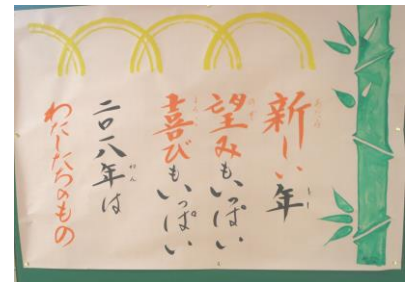 新しい年
望みもいっぱい
喜びもいっぱい
二〇一八年は
わたしたちのもの